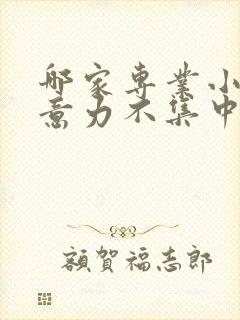 哪家专業小
意力不集中
額賀福志郎